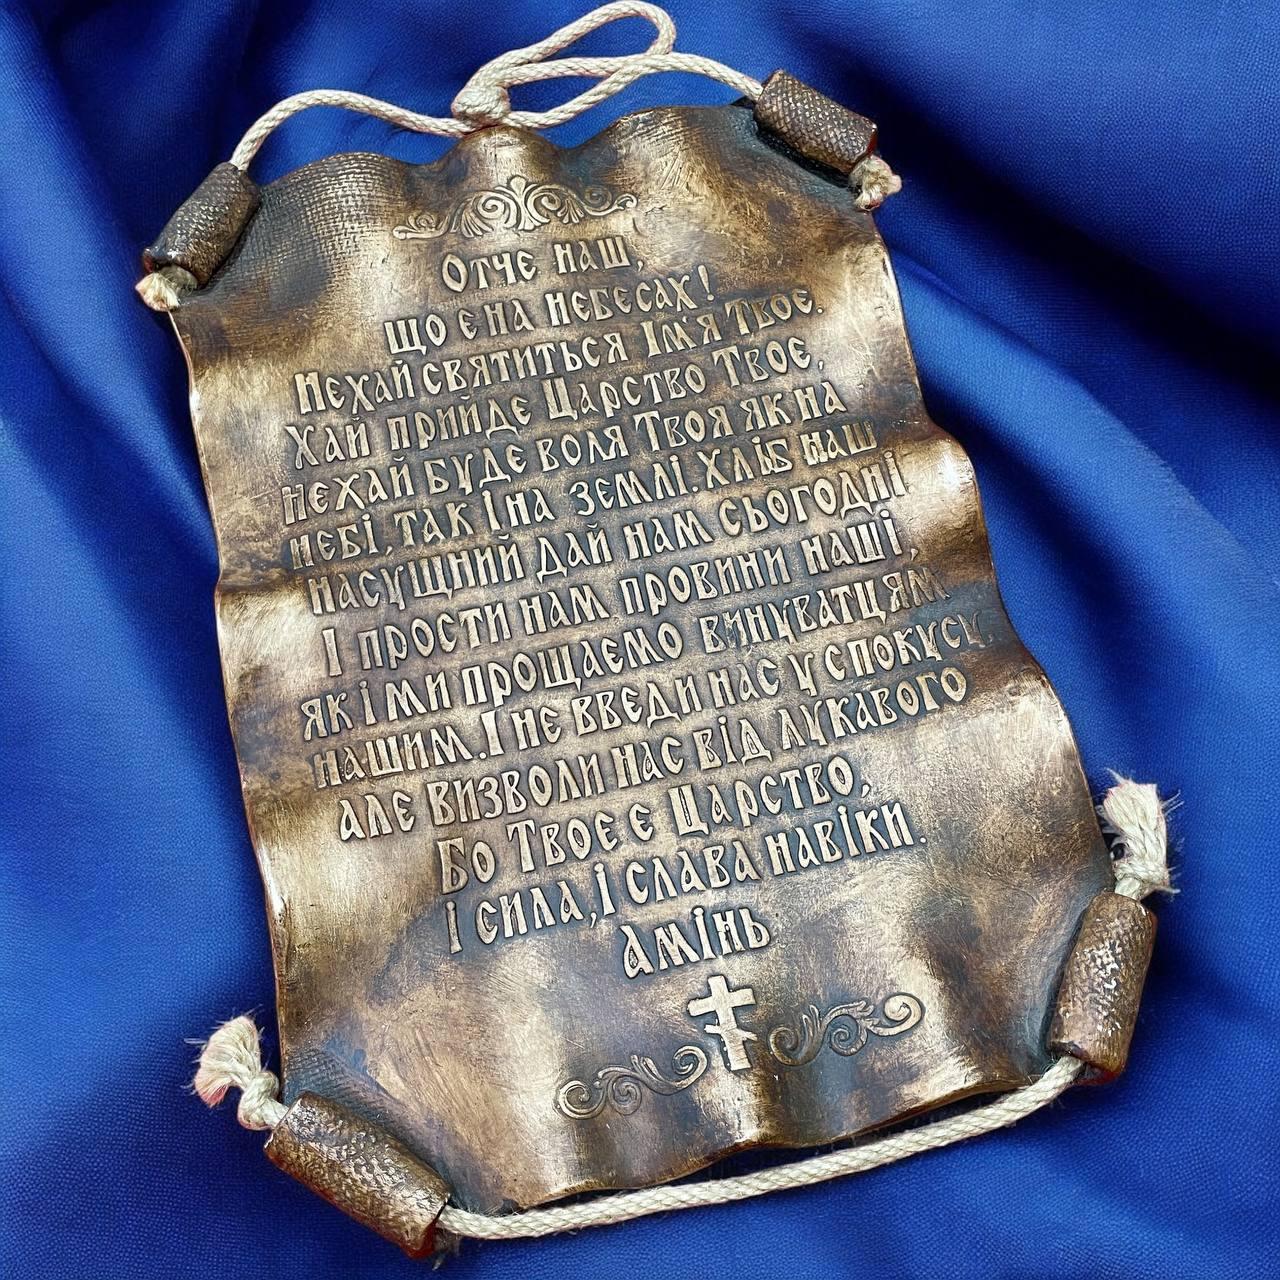 Отче наш,
що є на небесах!
Нехай святиться Імя Твоє.
Хай прийде Царство Твоє,
нехай буде воля Твоя як на
небі, так і на землі. Хліб наш
насущний дай нам сьогодні
І прости нам провини наші,
як і ми прощаємо винуватцям
нашим. І не введи нас у спокусу,
але визволи нас від лукавого
Бо Твоє є Царство,
і сила, і слава навіки.
амінь